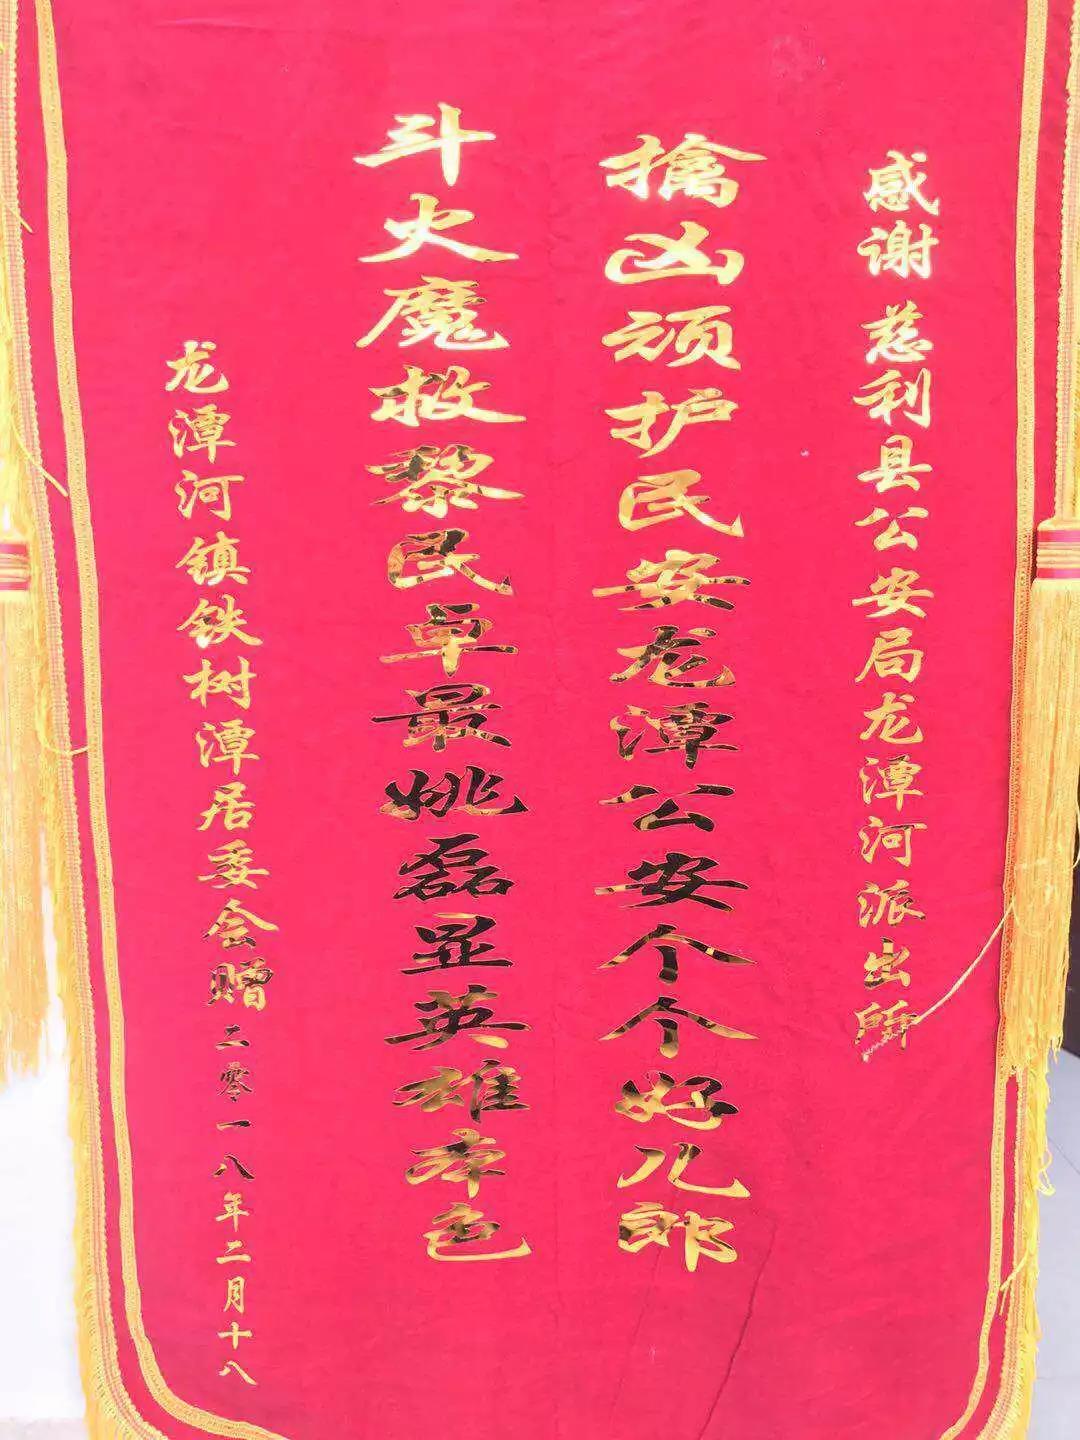 感谢慈利县公安局龙潭河派出所
擒凶顽护民安龙潭公安个个好儿郎
斗火魔救黎民卓最姚磊显英雄本色
龙潭河镇铁树潭居委会赠二零一八年二月十八